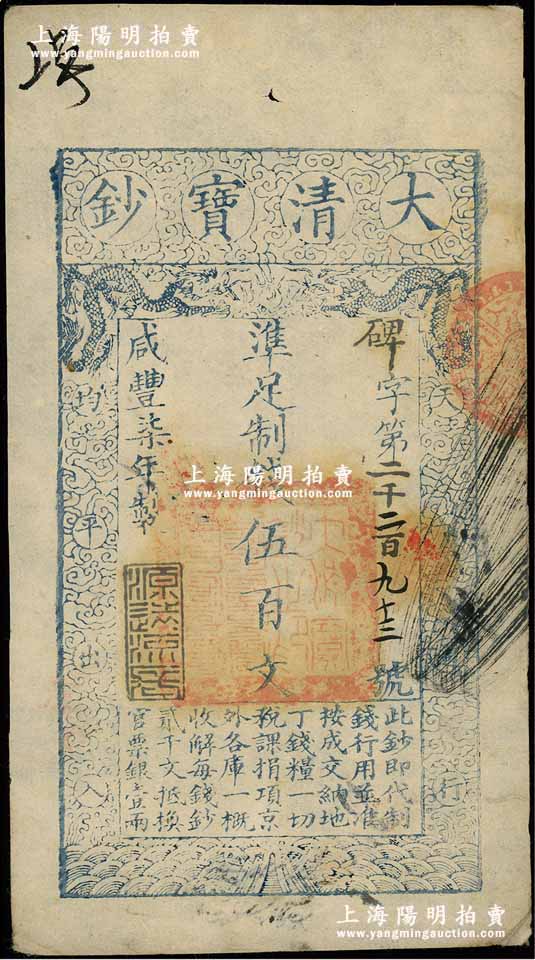 上海陽明拍賣
www.yangmingauction.com
大清寶鈔
天
行
碑字第二千二百九十三號
準足制錢伍百文
咸豐柒年製
均平出入
源遠流長
此鈔即代制
錢行用並准
按成交納地
丁錢糧一切
稅課捐項京
外各庫一概
收解每錢鈔
貳千文抵換
官票銀壹兩
上海陽明拍賣
www.yangmingauction.com
上海陽明拍賣
www.yangmingauction.com